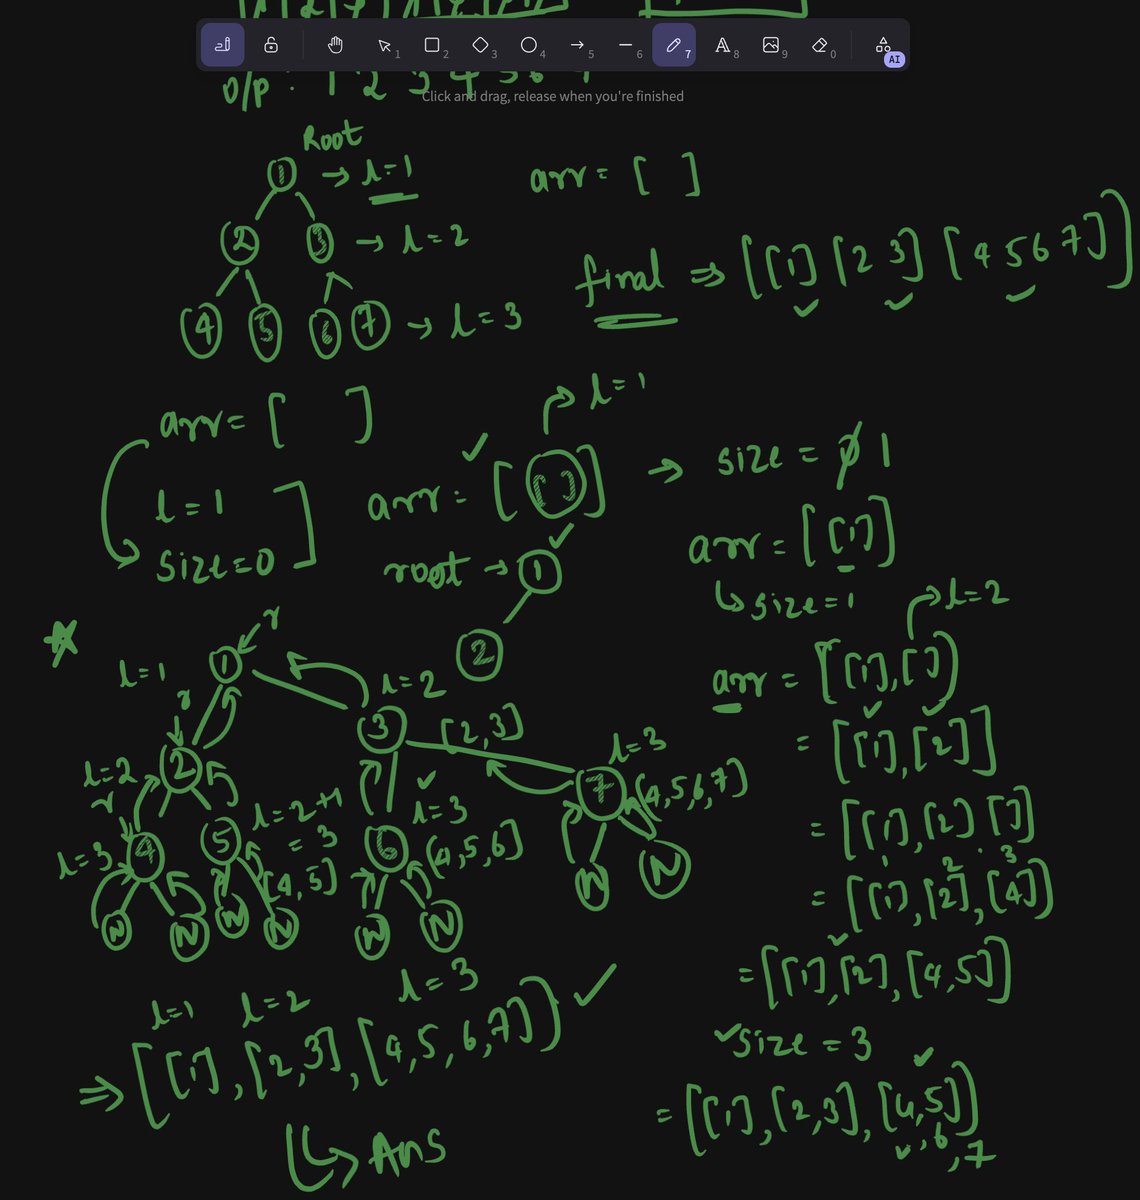 1 2 3 4 5 6 7
AI
o/p : 1 2 3 4 5 6 7
Click and drag, release when you're finished
Root
1 → l=1
arr = [ ]
2 3 → l=2
final ⇒ [[1] [2 3] [4 5 6 7]]
4 5 6 7 → l=3
arr = [ ]
l=1
size=0
l=1
arr = [[ ]] → size = 0 1
root → 1
2
arr = [[1]]
↳ size=1
l=2
arr = [[1],[ ]]
= [[1],[2]]
= [[1],[2] [ ]]
1 2 3
= [[1],[2],[4]]
= [[1],[2],[4,5]]
size = 3
= [[1],[2,3],[4,5]]
,6
,7
r
l=1 1
r
l=2
3 [2,3]
l=3
l=2 2
7 [4,5,6,7]
r
l=2+1
= 3
l=3
l=3 4 5 [4,5] 6 [4,5,6]
N N N N N N N N
l=1 l=2 l=3
⇒ [[1],[2,3],[4,5,6,7]]
↳ Ans